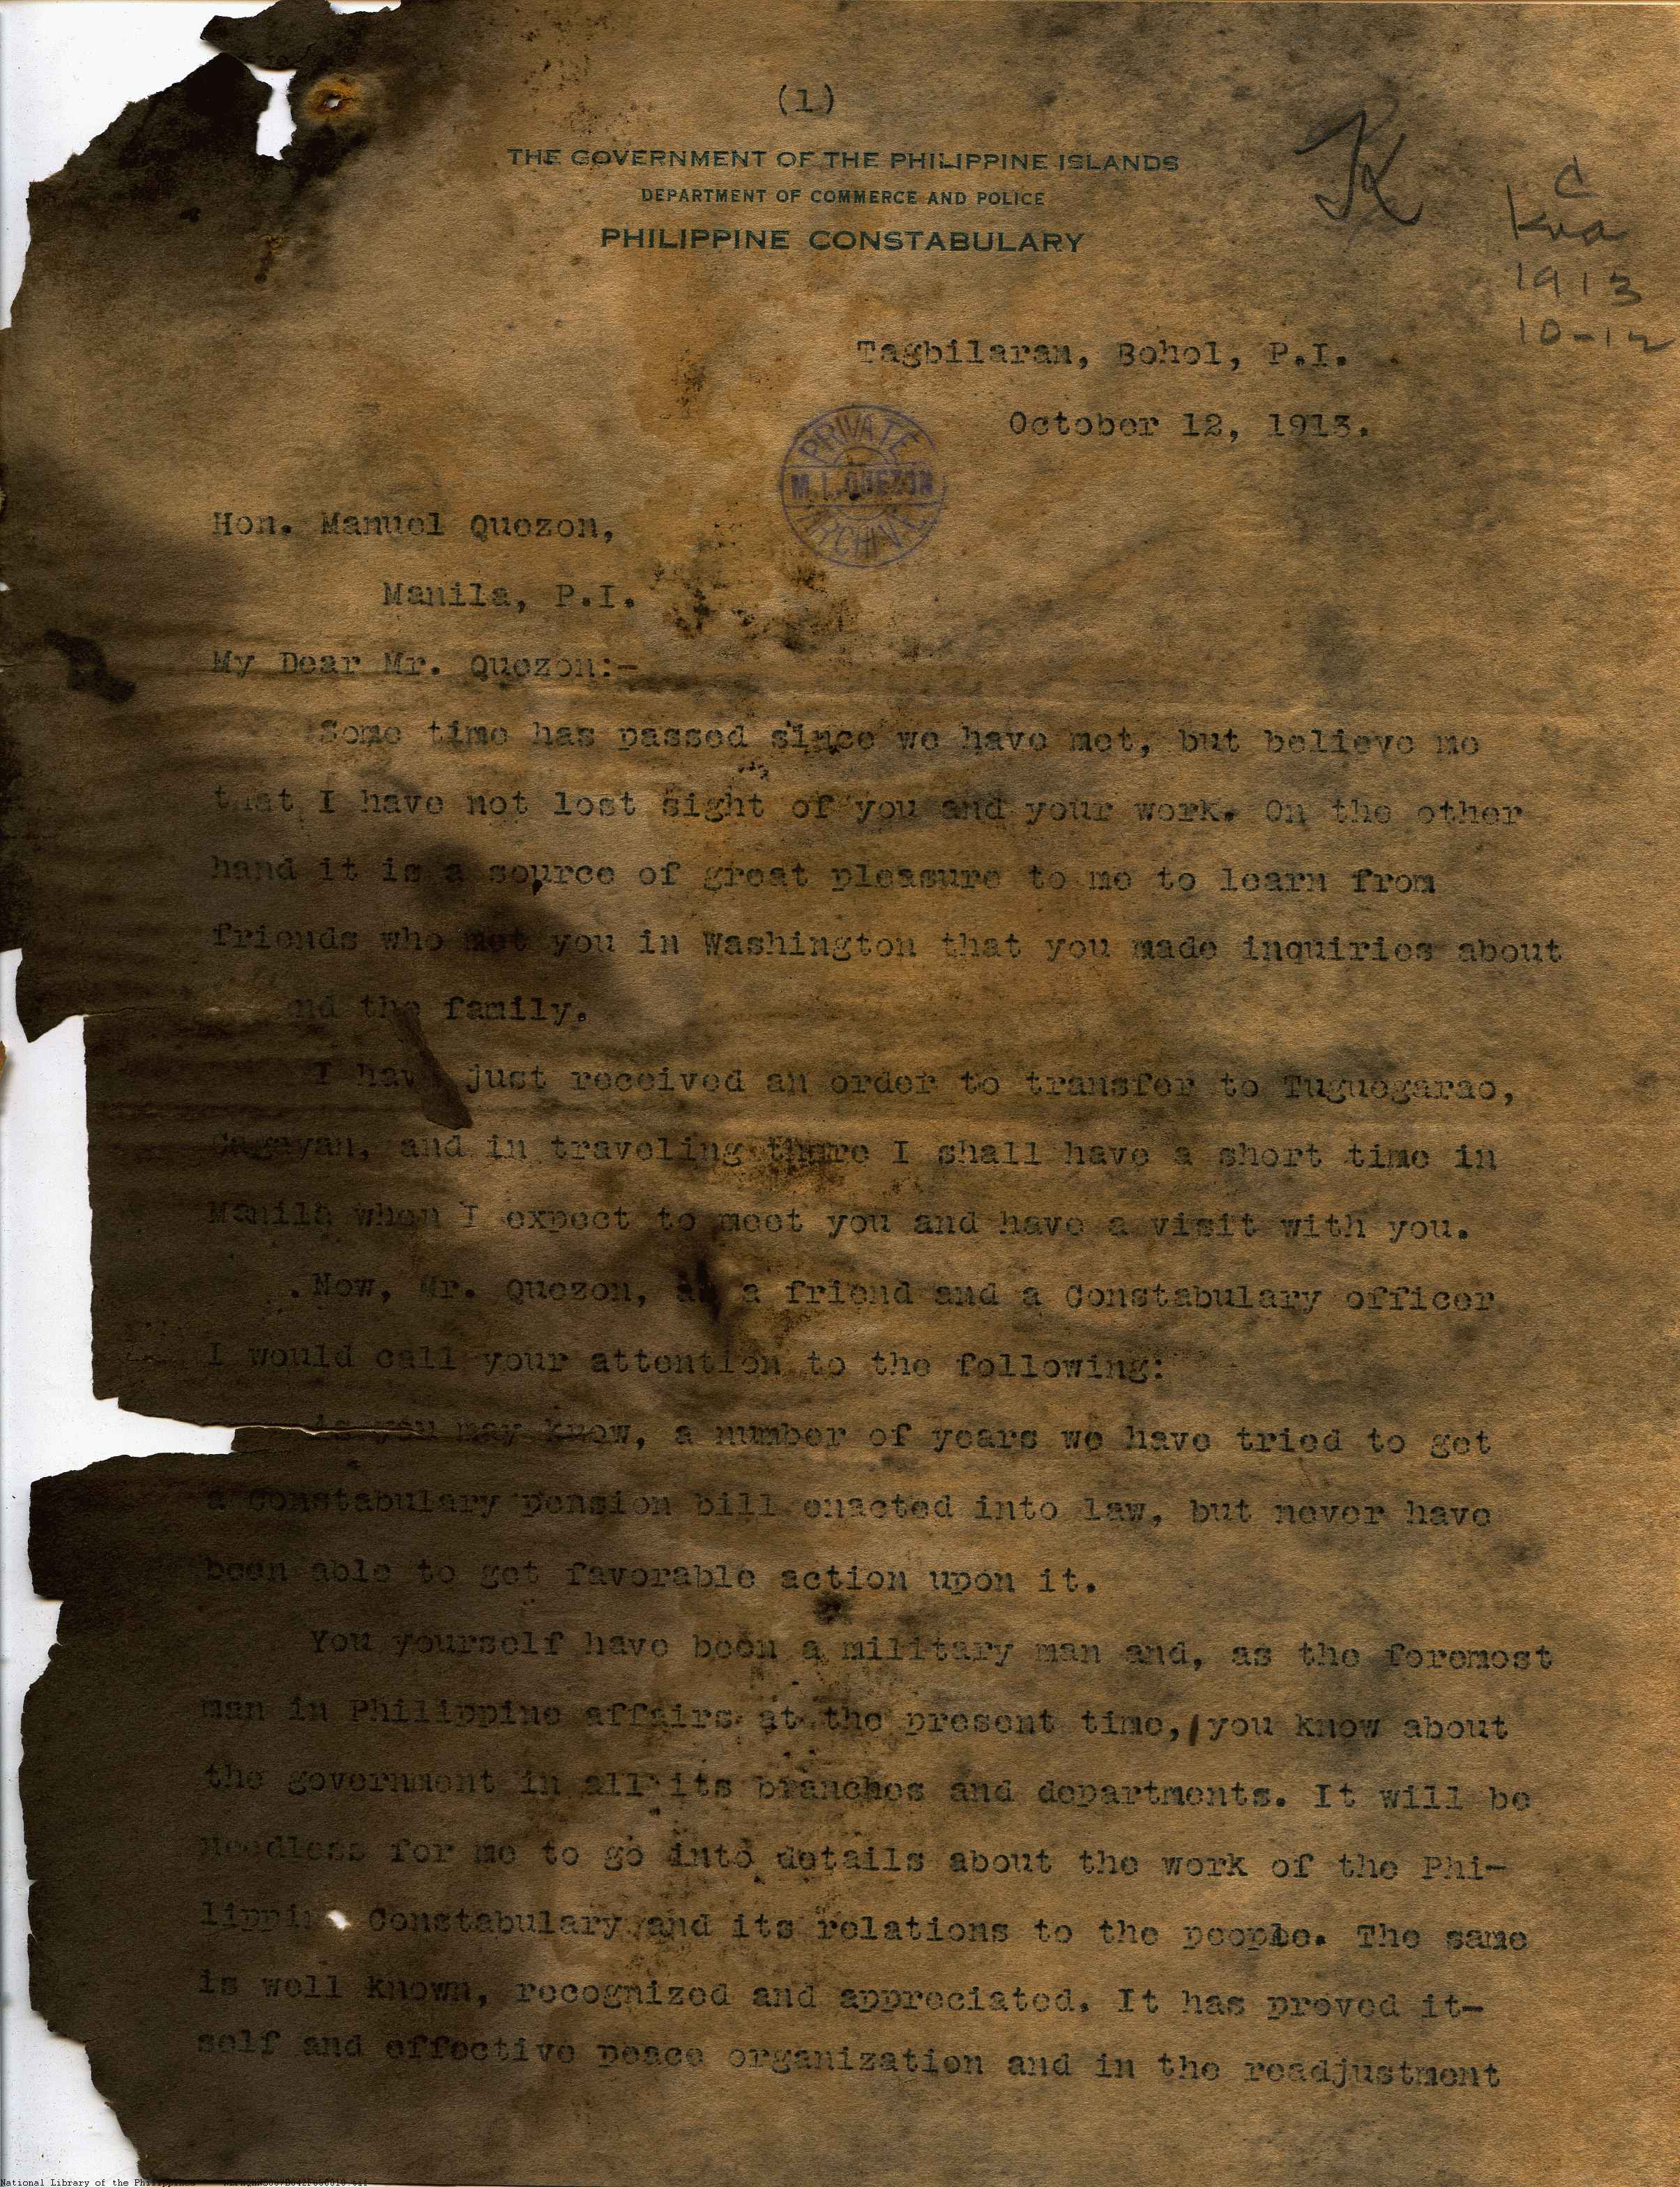 (1)
THE GOVERNMENT OF THE PHILIPPINE ISLANDS
DEPARTMENT OF COMMERCE AND POLICE
PHILIPPINE CONSTABULARY
K
C
1913
10-12
Tagbilaran, Bohol, P.I.
October 12, 1913.
PRIVATE
M.L. QUEZON
ARCHIVAL
Hon. Manuel Quezon,
Manila, P.I.
My Dear Mr. Quezon:-
Some time has passed since we have met, but believe me
that I have not lost sight of you and your work. On the other
hand it is a source of great pleasure to me to learn from
friends who met you in Washington that you made inquiries about
nd the family.
I have just received an order to transfer to Tuguegarao,
Cagayan, and in traveling there I shall have a short time in
Manila when I expect to meet you and have a visit with you.
Now, Mr. Quezon, as a friend and a Constabulary officer
I would call your attention to the following:
As you may know, a number of years we have tried to get
a Constabulary pension bill enacted into law, but never have
been able to get favorable action upon it.
You yourself have been a military man and, as the foremost
man in Philippine affairs at the present time, you know about
the government in all its branches and departments. It will be
needless for me to go into details about the work of the Phi-
lippine Constabulary and its relations to the people. The same
is well known, recognized and appreciated. It has proved it-
self and effective peace organization and in the readjustment
National Library of the Philippines